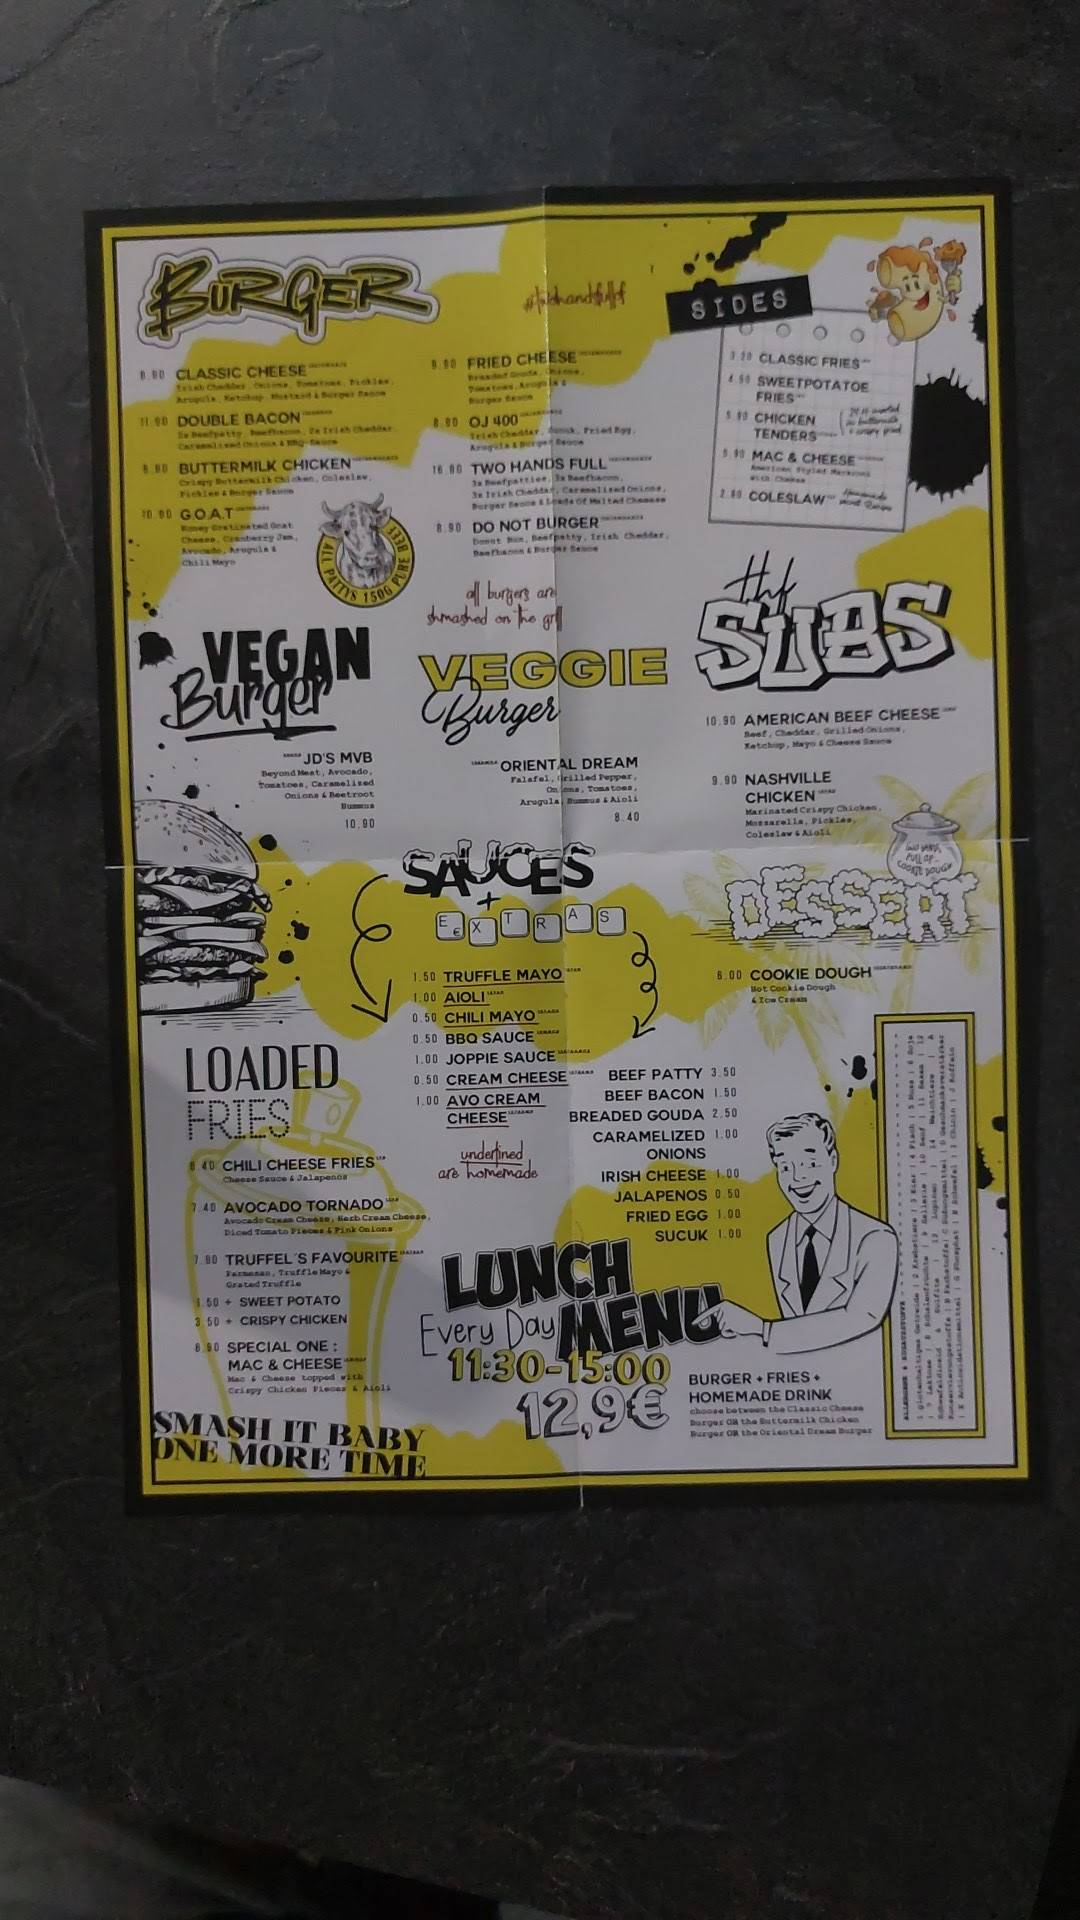 BURGER
CLASSIC CHEESE
Irish Cheddar, Onions, Tomatoes, Pickles,
Arugula, Ketchup, Mustard & Burger Sauce
11.90 DOUBLE BACON
2x Beefpatty, Beefbacon, 2x Irish Cheddar,
Caramelized Onions & BBQ-Sauce
BUTTERMILK CHICKEN
Crispy Buttermilk Chicken, Coleslaw,
Pickles & Burger Sauce
10.90 G.O.A.T
Honey Gratinated Goat
Cheese, Cranberry Jam,
Avocado, Arugula &
Chili Mayo
ALL PATTYS 150G PURE BEEF
FRIED CHEESE
Breaded Gouda, Onions,
Tomatoes, Arugula &
Burger Sauce
OJ 400
Irish Cheddar, Sucuk, Fried Egg,
Arugula & Burger Sauce
16.90 TWO HANDS FULL
3x Beefpatties, 3x Beefbacon,
3x Irish Cheddar, Caramelized Onions,
Burger Sauce & Loads Of Melted Cheeese
8.90 DO NOT BURGER
Donut Bun, Beefpatty, Irish Cheddar,
Beefbacon & Burger Sauce
all burgers are
shmashed on the grill
SIDES
3.20 CLASSIC FRIES
4.50 SWEETPOTATOE
FRIES
5.90 CHICKEN
TENDERS
5.90 MAC & CHEESE
American Styled Macaroni
with Cheese
2.80 COLESLAW
Homemade
secret Recipe
VEGAN
Burger
JD'S MVB
BeyondMeat, Avocado,
Tomatoes, Caramelized
Onions & Beetroot
Hummus
10.90
VEGGIE
Burger
ORIENTAL DREAM
Falafel, Grilled Pepper,
Onions, Tomatoes,
Arugula, Hummus & Aioli
8.40
the
SUBS
10.90 AMERICAN BEEF CHEESE
Beef, Cheddar, Grilled Onions,
Ketchup, Mayo & Cheese Sauce
9.90 NASHVILLE
CHICKEN
Marinated Crispy Chicken,
Mozzarella, Pickles,
Coleslaw & Aioli
SAUCES
+
E€XTRAS
1.50 TRUFFLE MAYO
1.00 AIOLI
0.50 CHILI MAYO
0.50 BBQ SAUCE
1.00 JOPPIE SAUCE
0.50 CREAM CHEESE
1.00 AVO CREAM
CHEESE
underlined
are homemade
BEEF PATTY 3.50
BEEF BACON 1.50
BREADED GOUDA 2.50
CARAMELIZED 1.00
ONIONS
IRISH CHEESE 1.00
JALAPENOS 0.50
FRIED EGG 1.00
SUCUK 1.00
TWO HANDS
FULL OF
COOKIE DOUGH
DESSERT
6.00 COOKIE DOUGH
Hot Cookie Dough
& Ice Cream
LOADED
FRIES
6.40 CHILI CHEESE FRIES
Cheese Sauce & Jalapenos
7.40 AVOCADO TORNADO
Avocado Cream Cheese, Herb Cream Cheese,
Diced Tomato Pieces & Pink Onions
TRUFFEL'S FAVOURITE
Parmesan, Truffle Mayo &
Grated Truffle
1.50 + SWEET POTATO
3.50 + CRISPY CHICKEN
8.90 SPECIAL ONE :
MAC & CHEESE
Mac & Cheese topped with
Crispy Chicken Pieces & Aioli
SMASH IT BABY
ONE MORE TIME
LUNCH
Every Day MENU
11:30-15:00
12,9€
BURGER + FRIES +
HOMEMADE DRINK
choose between the Classic Cheese
Burger OR the Buttermilk Chicken
Burger OR the Oriental Dream Burger